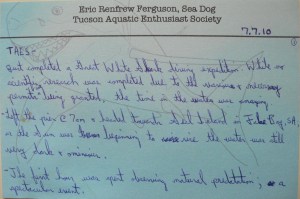 Eric Renfrew Ferguson, Sea Dog
Tucson Aquatic Enthusiast Society
7.7.10
TAES-
Just completed a Great White Shark diving expedition. While no
scientific research was completed due to the various necessary
permits being granted, the time in the water was amazing.
Left the pier @ 7am & headed towards Island in False Bay, SA,
as the sun was beginning to rise the water was still
very dark & ominous.
- The first hour was spent observing natural predatation, a
spectacular event.